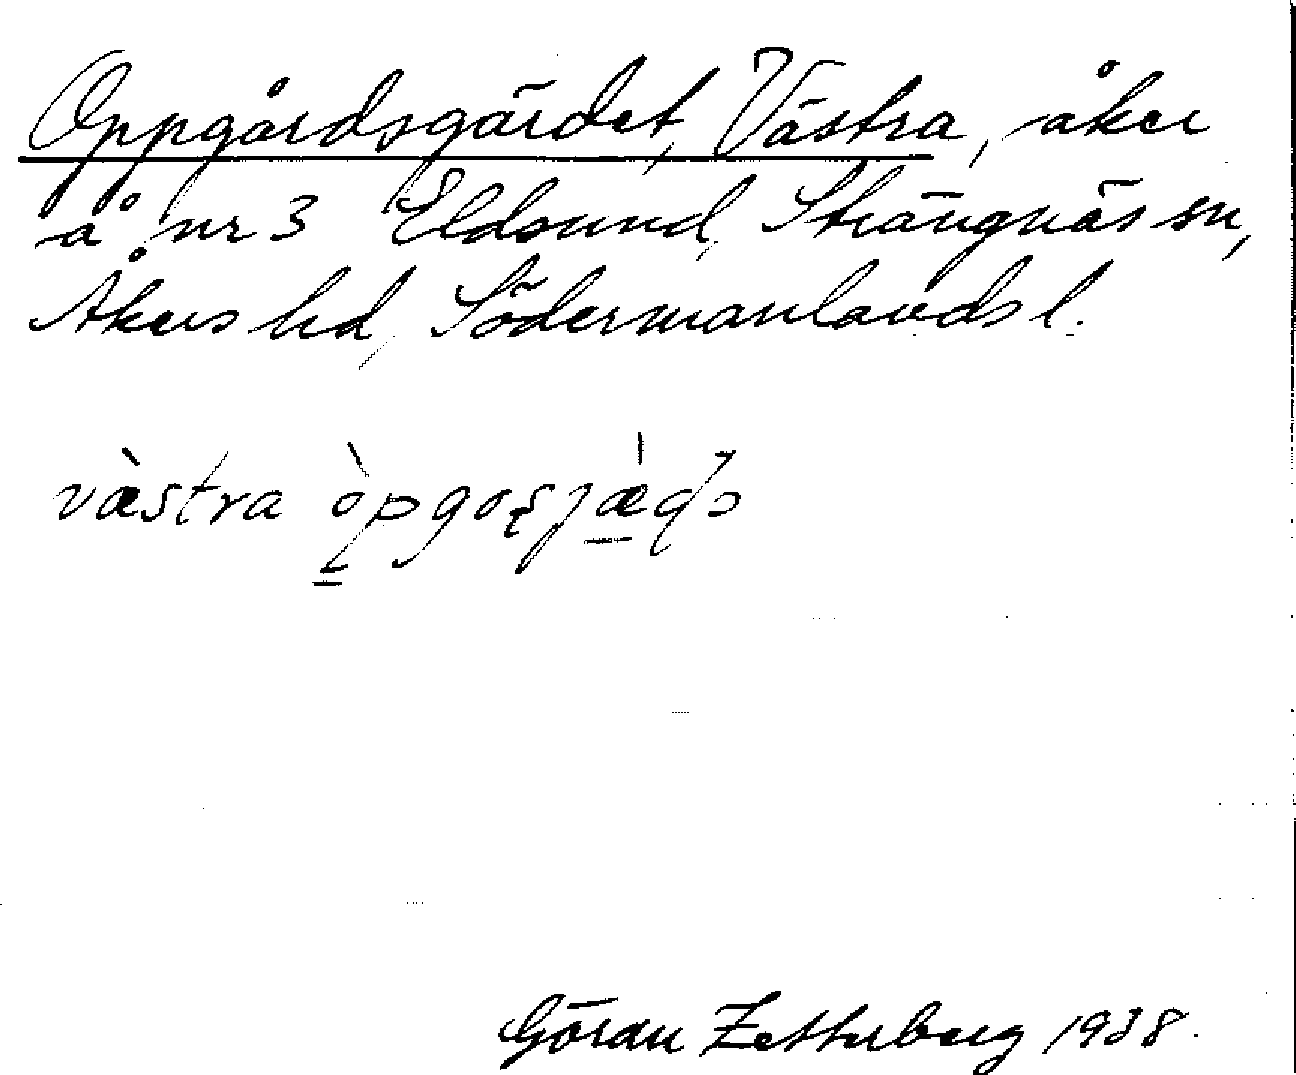 Oppgårdsgärdet, Västra, åker
å nr 3 Eldsund, Strängnäs sn,
Åkers hd, Södermanlands l.
västra
Göran Zetterberg 1938.